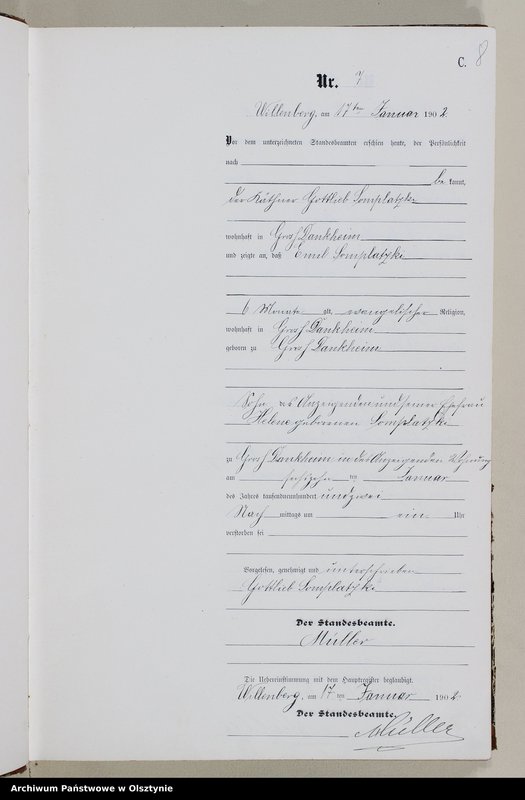 C. 8
Nr. 7
Willenberg, am 17ten Januar 1902
Vor dem unterzeichneten Standesbeamten erschien heute, der Persönlichkeit
nach
be kannt,
der Käthner Gottlieb Somplatzki
wohnhaft in Groß Dankheim
und zeigte an, daß Emil Somplatzki
6 Monate alt, evangelischer Religion,
wohnhaft in Groß Dankheim
geboren zu Groß Dankheim
Sohn des Anzeigenden und seiner Ehefrau
Helene geborenen Somplatzki
zu Groß Dankheim in des Anzeigenden Wohnung
am sechszehn ten Januar
des Jahres tausendneunhundert und zwei
Nach mittags um ein Uhr
verstorben sei
Vorgelesen, genehmigt und unterschrieben
Gottlieb Somplatzki
Der Standesbeamte.
Müller
Die Uebereinstimmung mit dem Hauptregister beglaubigt.
Willenberg, am 17 ten Januar 1902
Der Standesbeamte.
Müller
Archiwum Państwowe w Olsztynie